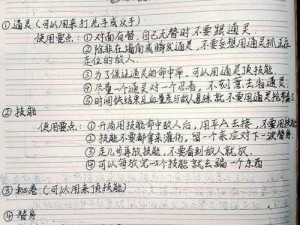 ①通灵(可以用来打先手或反手)
使用要点:①对面有替,自己无替时不要跟通灵
②除非在墙角或瞬发通灵,不要妄想用通灵抓正在走位的敌人。
③为了保证通灵的命中率,可以用通灵顶技能
④尽量一个通灵对一个忍者,不刻意去扫通灵
⑤时间快结束且血量差与敌人悬殊就不要用通灵
②技能
使用要点:①开局用技能命中敌人后,用平A去接,不要用技能
②技能不要都拿来灌伤,留一个来应对下一波替身
③走几步再放技能,不要看到敌人就放
④可以每放完一个技能就去骗一个东西
③秘卷(可以用来顶技能)
④替身